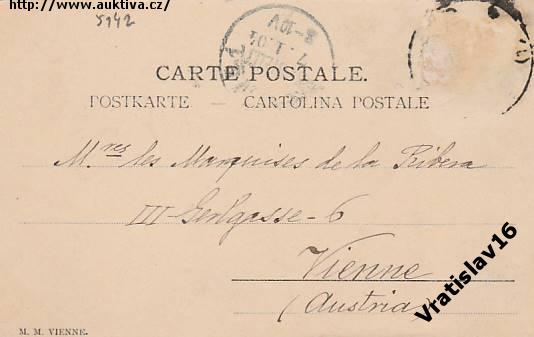 http://www.auktiva.cz/
5142
8-10V
7.1.01
CARTE POSTALE.
POSTKARTE — CARTOLINA POSTALE
M.res les Marquises de la Ribera
III Gerlgasse-6
Vienne
(Austria)
M. M. VIENNE.
Vratislav16